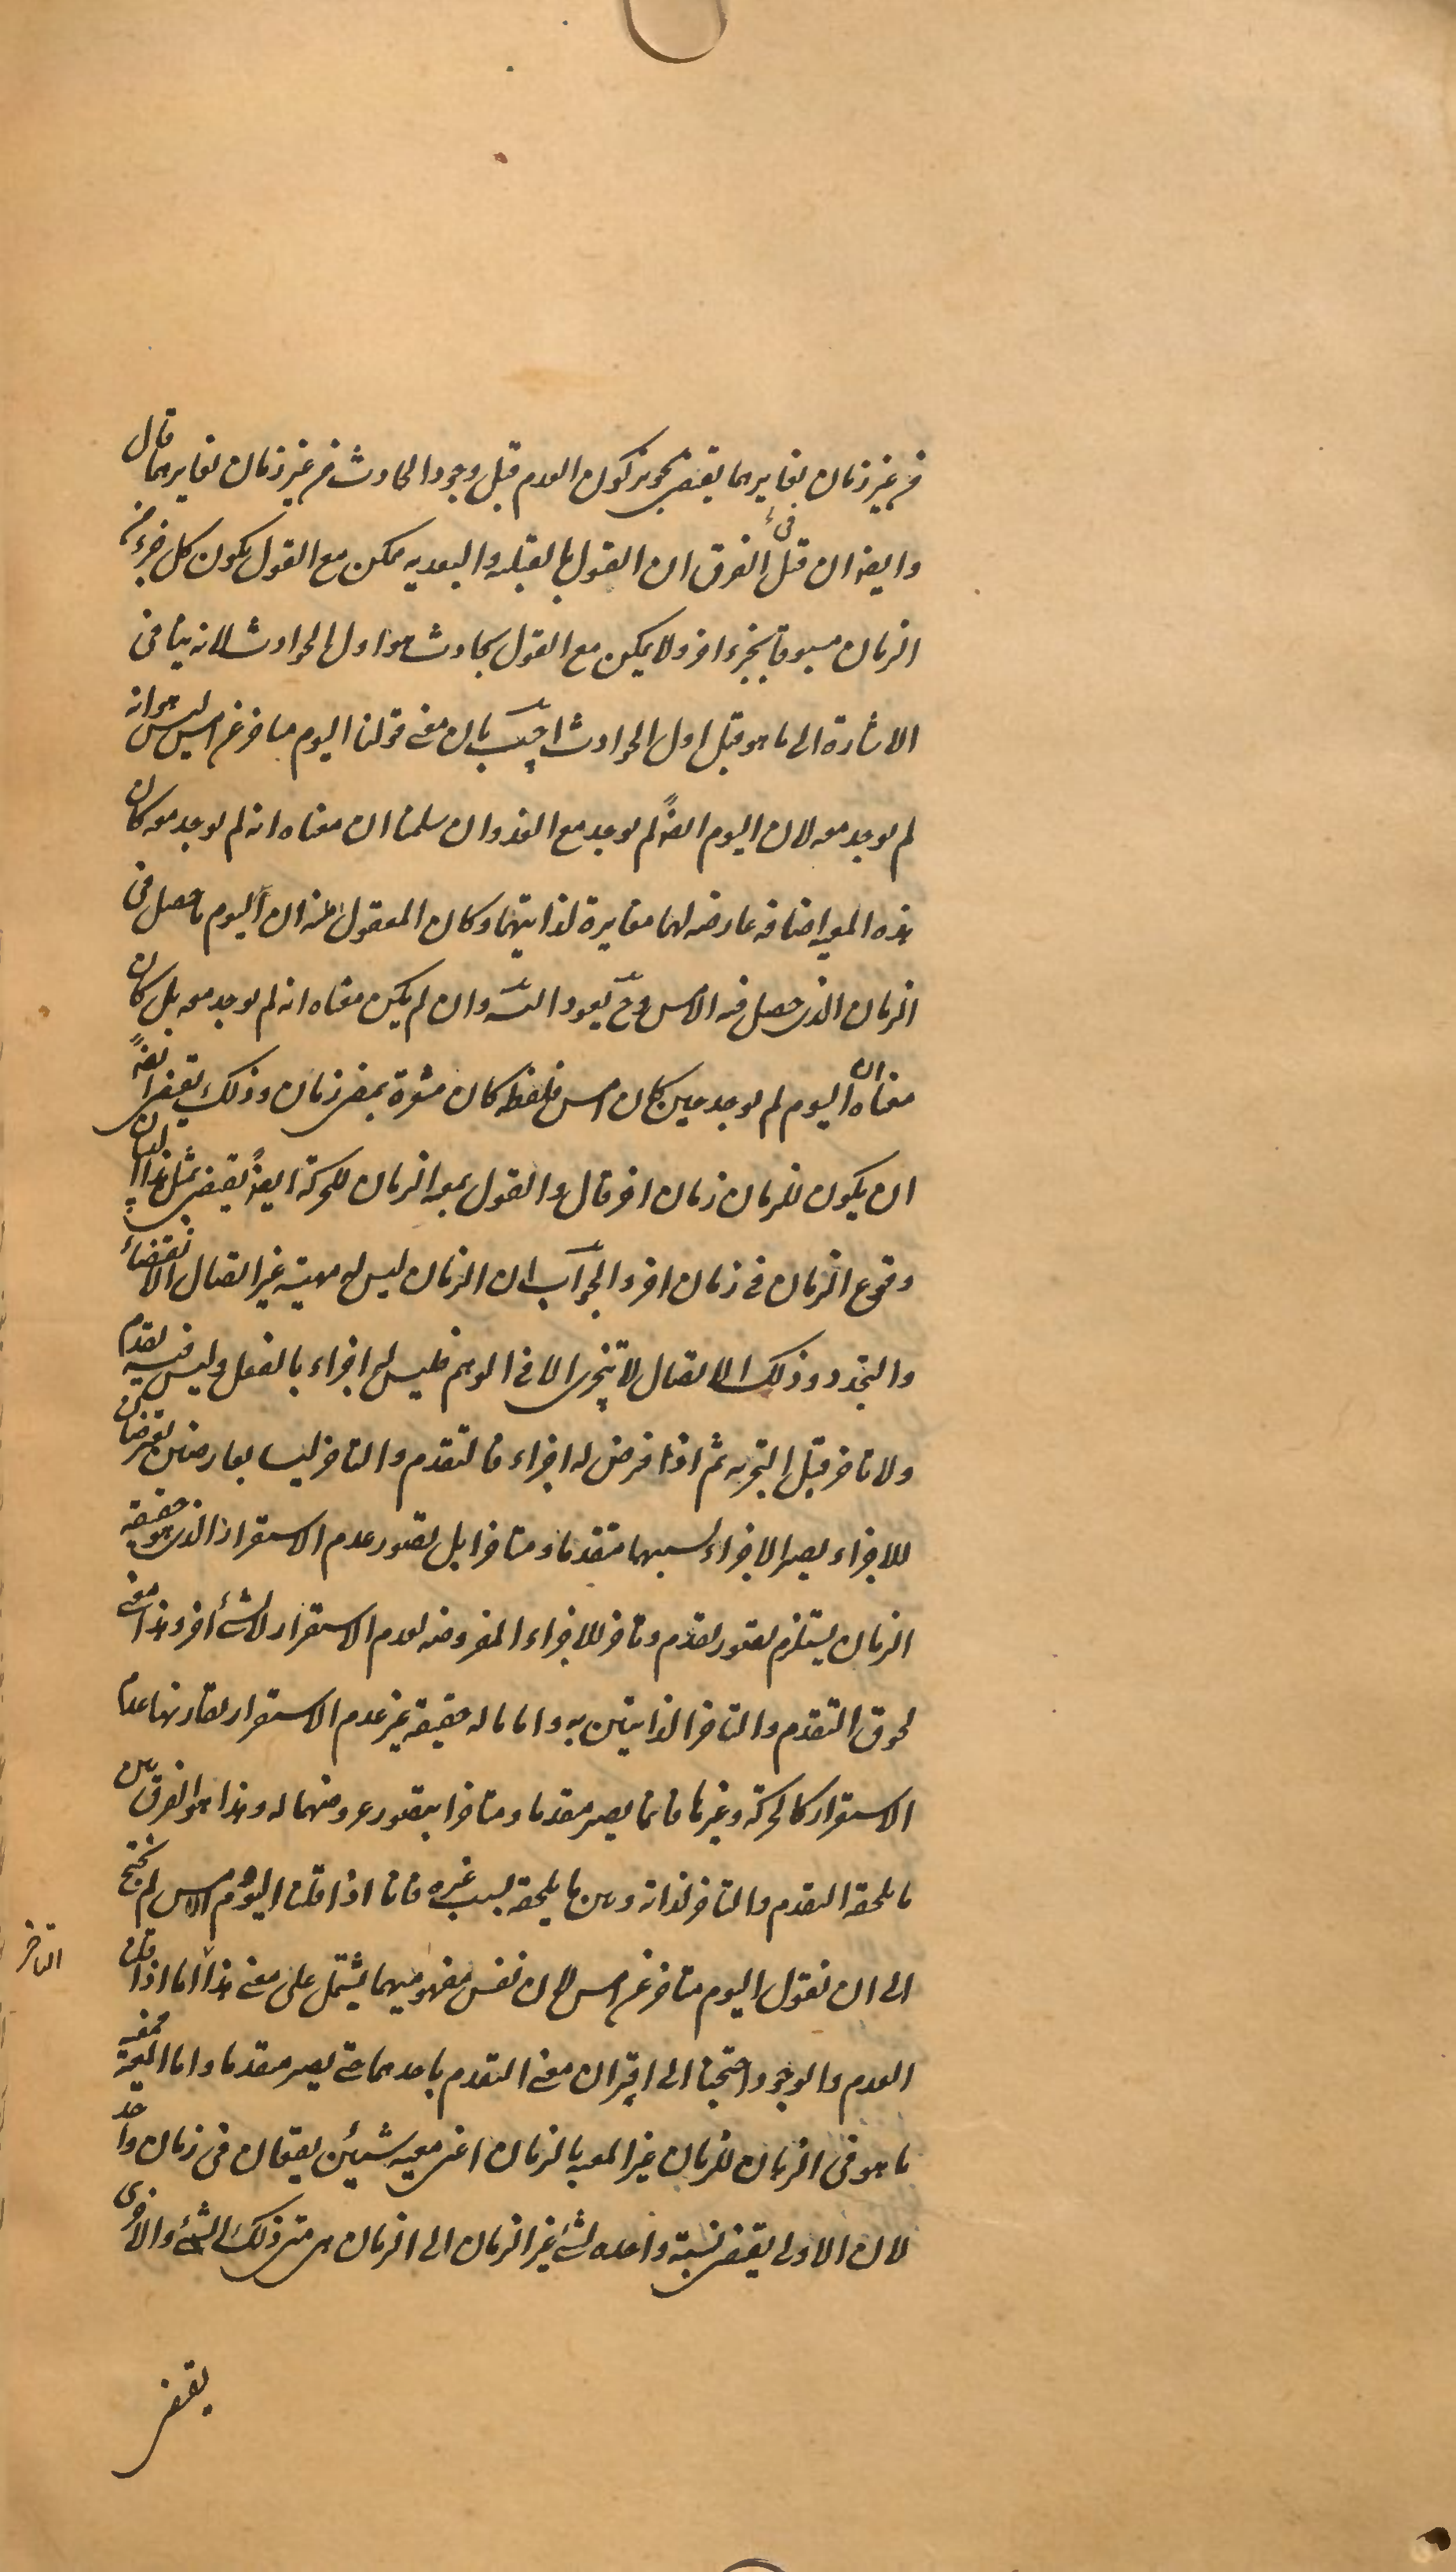 فی غیر زمان یغایرهما یقتضی تجویز کون العدم قبل وجود الحادث فی غیر زمان یغایرهما قال
وایضا ان قیل فی الفرق ان القول بالقبلیه والبعدیه ممکن مع القول بکون کل جزء من
الزمان مسبوقا بجزء اخر ولا یمکن مع القول بحادث هو اول الحوادث لانه ینافی
الاشارة الی ما هو قبل اول الحوادث اجیب بان معنی قولنا الیوم متاخر عن امس لیس هو انه
لم یوجد معه لان الیوم ایضاً لم یوجد مع الغد وان سلمنا ان معناه انه لم یوجد معه کان
هذه المعیه اضافه عارضه لهما مغایرة لذاتیهما وکان المعقول منه ان الیوم ما حصل فی
الزمان الذی حصل فیه الامس وح یعود التسـ وان لم یکن معناه انه لم یوجد معه بل کان
معناه ان الیوم لم یوجد حین کان امس فلفظه کان مشعرة بمضی زمان وذلک یقتضی ایضاً
ان یکون للزمان زمان اخر قال والقول بمعیه الزمان للحرکة ایضاً یقتضی بمثل هذا البیان
وقوع الزمان فی زمان اخر والجواب ان الزمان لیس له مهیه غیر اتصال الانقضاء
والتجدد وذلک الاتصال لا یتجزی الا فی الوهم فلیس له اجزاء بالفعل ولیس فیه تقدم
ولا تاخر قبل التجزیه ثم اذا فرض له اجزاء فالتقدم والتاخر لیسا بعارضین یعرضان
للاجزاء یصیر الاجزاء بسببهما متقدما ومتاخرا بل تصور عدم الاستقرار الذی هو حقیقه
الزمان یستلزم تصور تقدم وتاخر للاجزاء المفروضه لعدم الاستقرار لا لشئ اخر وهذا معنی
لحوق التقدم والتاخر الذاتیین به واما ما له حقیقه غیر عدم الاستقرار یقارنها عدم
الاستقرار کالحرکة وغیرها فانما یصیر متقدما ومتاخرا بتصور عروضهما له وهذا هو الفرق بین
ما یلحقه التقدم والتاخر لذاته وبین ما یلحقه بسبب غیره فانا اذا قلنا الیوم والامس لم نحتج
الی ان نقول الیوم متاخر عن امس لان نفس مفهومیهما یشتمل علی معنی هذا التاخر اما اذا قلنا
العدم والوجود احتجنا الی اقتران معنی التقدم باحدهما حتی یصیر متقدما واما المعیه فمعیه
ما هو فی الزمان للزمان غیر المعیه بالزمان اعنی معیه شیئین یقعان فی زمان واحد
لان الاولی یقتضی نسبة واحده لشئ غیر الزمان الی الزمان هی متی ذلک الشئ والاخری
یقتضی